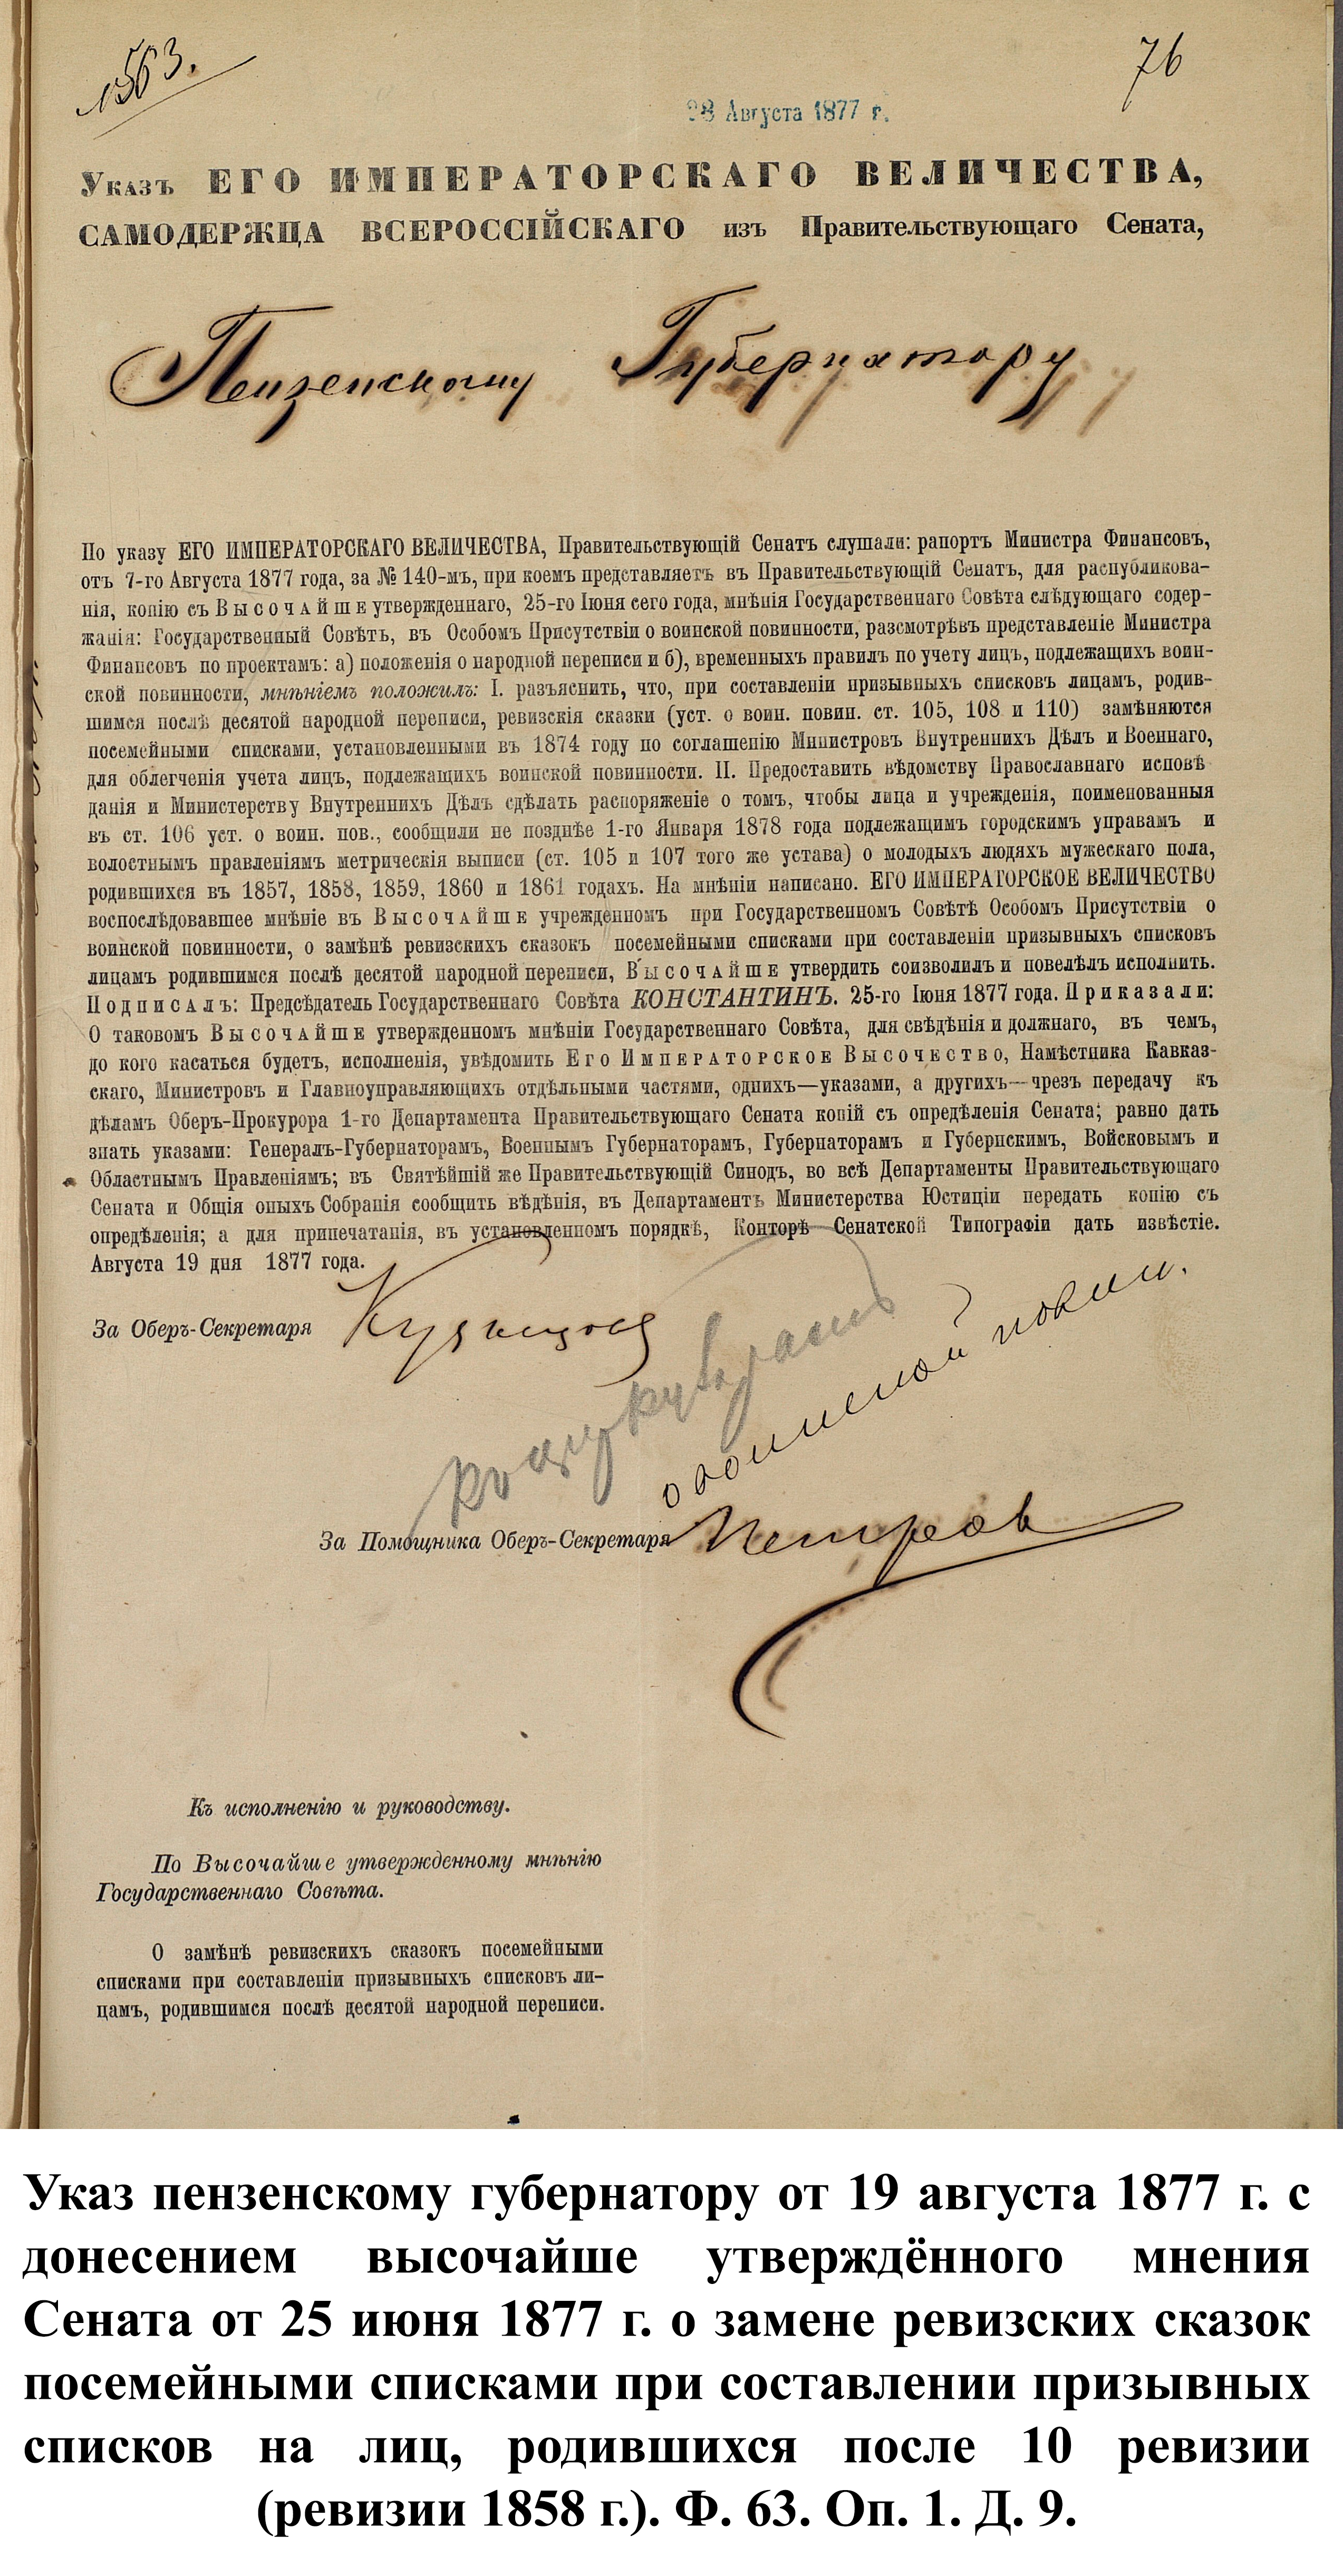 1563.
76
28 Августа 1877 г.
Указъ ЕГО ИМПЕРАТОРСКАГО ВЕЛИЧЕСТВА,
САМОДЕРЖЦА ВСЕРОССІЙСКАГО изъ Правительствующаго Сената,
Пензенскому Губернатору
По указу ЕГО ИМПЕРАТОРСКАГО ВЕЛИЧЕСТВА, Правительствующій Сенатъ слушали: рапортъ Министра Финансовъ,
отъ 7-го Августа 1877 года, за № 140-мъ, при коемъ представляетъ въ Правительствующій Сенатъ, для распубликова-
нія, копію съ Высочайше утвержденнаго, 25-го Іюня сего года, мнѣнія Государственнаго Совѣта слѣдующаго содер-
жанія: Государственный Совѣтъ, въ Особомъ Присутствіи о воинской повинности, разсмотрѣвъ представленіе Министра
Финансовъ по проектамъ: а) положенія о народной переписи и б), временныхъ правилъ по учету лицъ, подлежащихъ воин-
ской повинности, мнѣніемъ положилъ: I. разъяснить, что, при составленіи призывныхъ списковъ лицамъ, родив-
шимся послѣ десятой народной переписи, ревизскія сказки (уст. о воин. повин. ст. 105, 108 и 110) замѣняются
посемейными списками, установленными въ 1874 году по соглашенію Министровъ Внутреннихъ Дѣлъ и Военнаго,
для облегченія учета лицъ, подлежащихъ воинской повинности. II. Предоставить вѣдомству Православнаго исповѣ
данія и Министерству Внутреннихъ Дѣлъ сдѣлать распоряженіе о томъ, чтобы лица и учрежденія, поименованныя
въ ст. 106 уст. о воин. пов., сообщили не позднѣе 1-го Января 1878 года подлежащимъ городскимъ управамъ и
волостнымъ правленіямъ метрическія выписи (ст. 105 и 107 того же устава) о молодыхъ людяхъ мужескаго пола,
родившихся въ 1857, 1858, 1859, 1860 и 1861 годахъ. На мнѣніи написано. ЕГО ИМПЕРАТОРСКОЕ ВЕЛИЧЕСТВО
воспослѣдовавшее мнѣніе въ Высочайше учрежденномъ при Государственномъ Совѣтѣ Особомъ Присутствіи о
воинской повинности, о замѣнѣ ревизскихъ сказокъ посемейными списками при составленіи призывныхъ списковъ
лицамъ родившимся послѣ десятой народной переписи, Высочайше утвердить соизволилъ и повелѣлъ исполнить.
Подписалъ: Предсѣдатель Государственнаго Совѣта КОНСТАНТИНЪ. 25-го Іюня 1877 года. Приказали:
О таковомъ Высочайше утвержденномъ мнѣніи Государственнаго Совѣта, для свѣдѣнія и должнаго, въ чемъ,
до кого касаться будетъ, исполненія, увѣдомить Его Императорское Высочество, Намѣстника Кавказ-
скаго, Министровъ и Главноуправляющихъ отдѣльными частями, однихъ—указами, а другихъ—чрезъ передачу къ
дѣламъ Оберъ-Прокурора 1-го Департамента Правительствующаго Сената копій съ опредѣленія Сената; равно дать
знать указами: Генералъ-Губернаторамъ, Военнымъ Губернаторамъ, Губернаторамъ и Губернскимъ, Войсковымъ и
Областнымъ Правленіямъ; въ Святѣйшій же Правительствующій Синодъ, во всѣ Департаменты Правительствующаго
Сената и Общія оныхъ Собранія сообщить вѣдѣнія, въ Департаментъ Министерства Юстиціи передать копію съ
опредѣленія; а для припечатанія, въ установленномъ порядкѣ, Конторѣ Сенатской Типографіи дать извѣстіе.
Августа 19 дня 1877 года.
За Оберъ-Секретаря Кузнецовъ
о воинской повин.
За Помощника Оберъ-Секретаря Петровъ
Къ исполненію и руководству.
По Высочайше утвержденному мнѣнію
Государственнаго Совѣта.
О замѣнѣ ревизскихъ сказокъ посемейными
списками при составленіи призывныхъ списковъ ли-
цамъ, родившимся послѣ десятой народной переписи.
Указ пензенскому губернатору от 19 августа 1877 г. с
донесением высочайше утверждённого мнения
Сената от 25 июня 1877 г. о замене ревизских сказок
посемейными списками при составлении призывных
списков на лиц, родившихся после 10 ревизии
(ревизии 1858 г.). Ф. 63. Оп. 1. Д. 9.